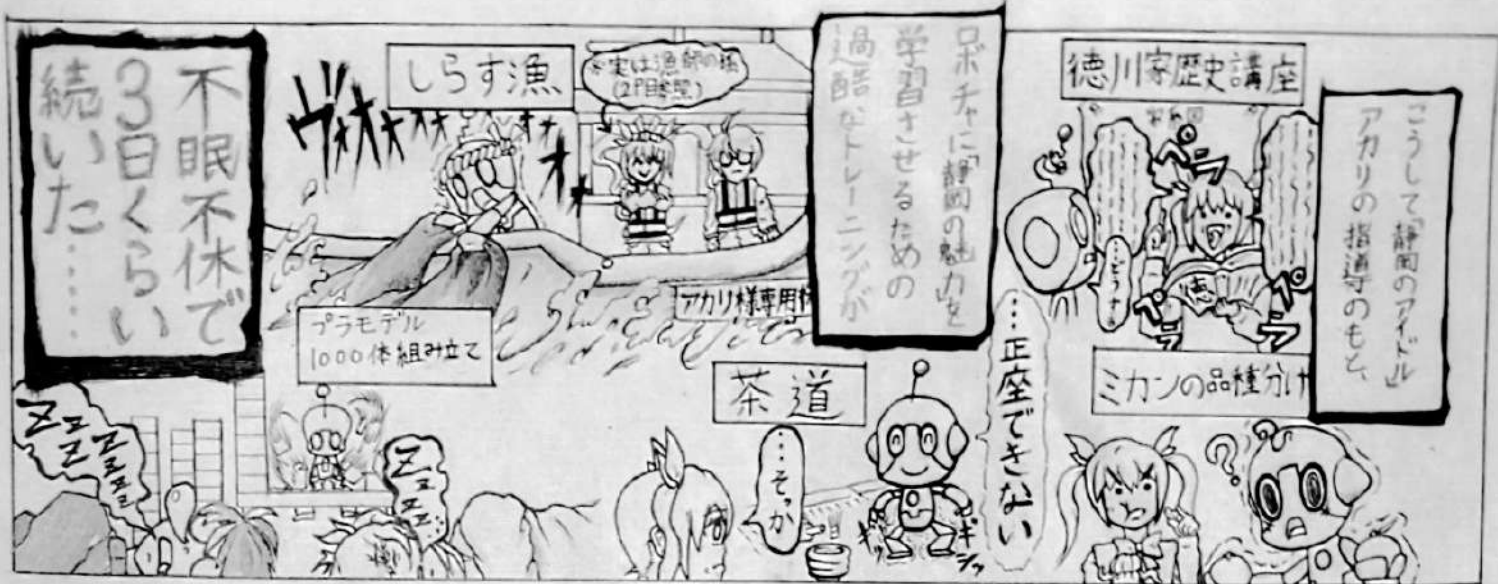 こうして「静岡のアイドル」
アカリの指導のもと、
徳川家歴史講座
家系図
ペラペラ
ペラペラ
徳
ミカンの品種分け
ロボチャに「静岡の魅力」を
学習させるための
過酷なトレーニングが
…正座できない
茶道
…そっか
ギギ
ギシッ
しらす漁
※実は漁師の
(2P目参照)
ヴォオォォォォォォ
アカリ様専用
プラモデル
1000体組み立て
不眠不休で
3日くらい
続いた……
ZZZZZZZ
ZZZZZ